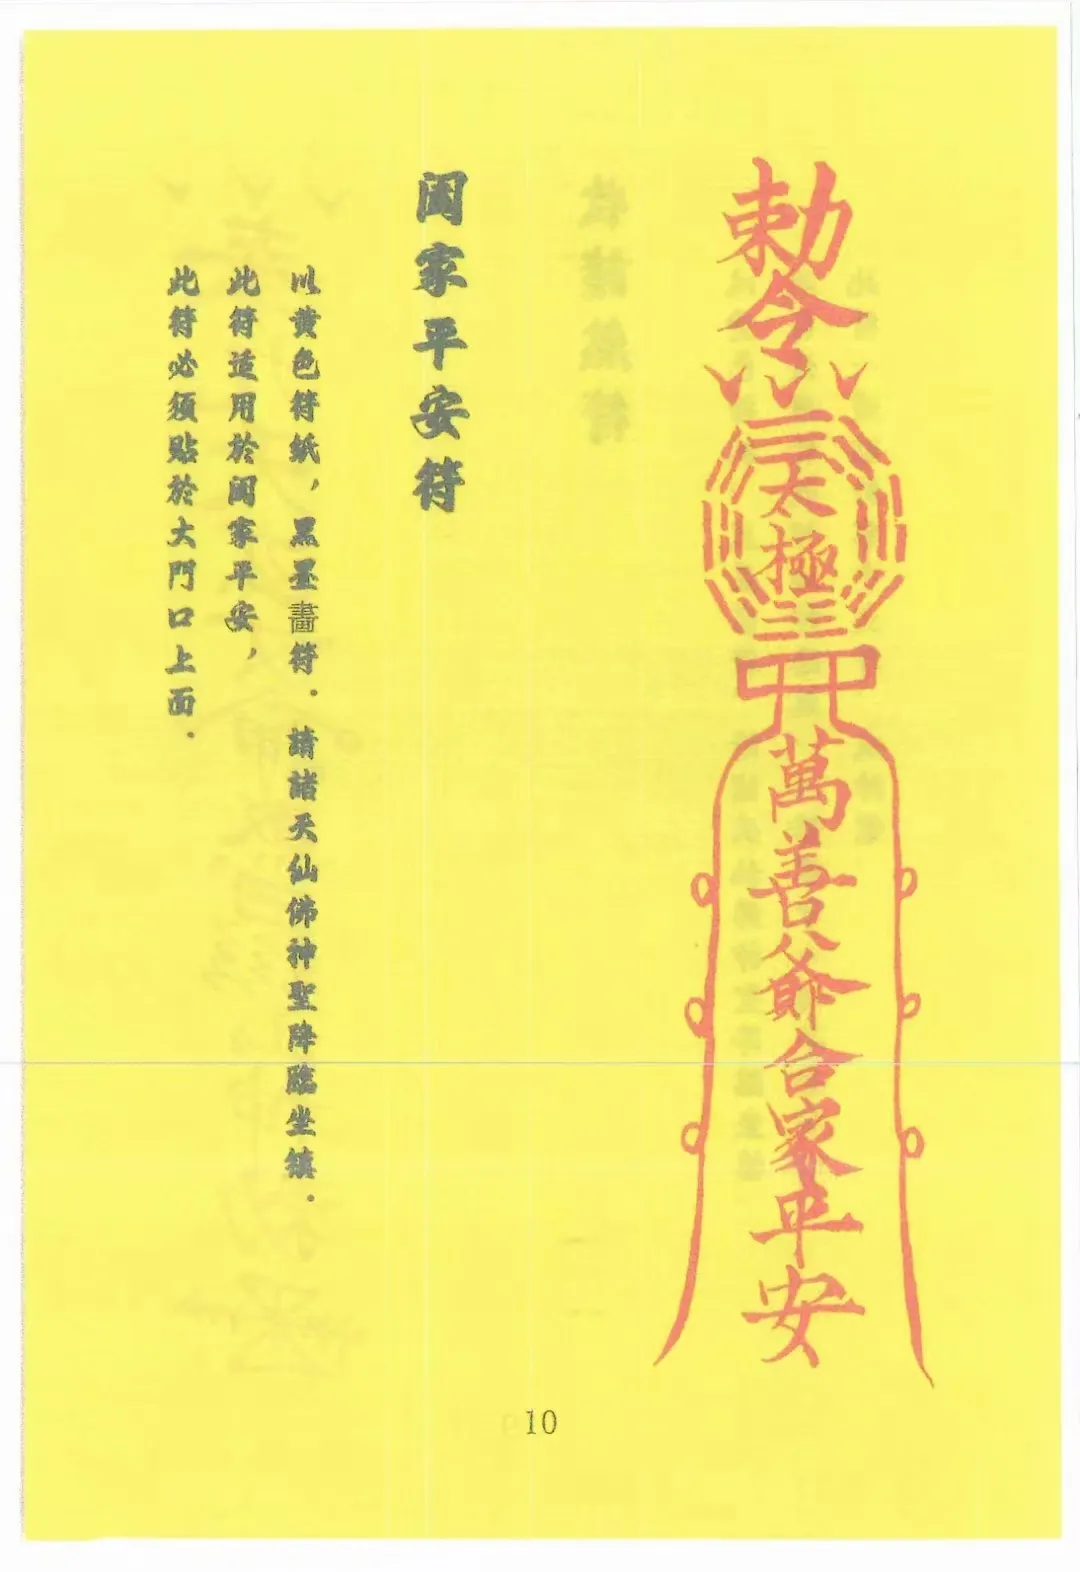 勅令
太極
萬善爺合家平安
闔家平安符
以黄色符紙，黑墨畵符．請諸天仙佛神聖降臨坐鎮．
此符适用於闔家平安，
此符必須貼於大門口上面．
10